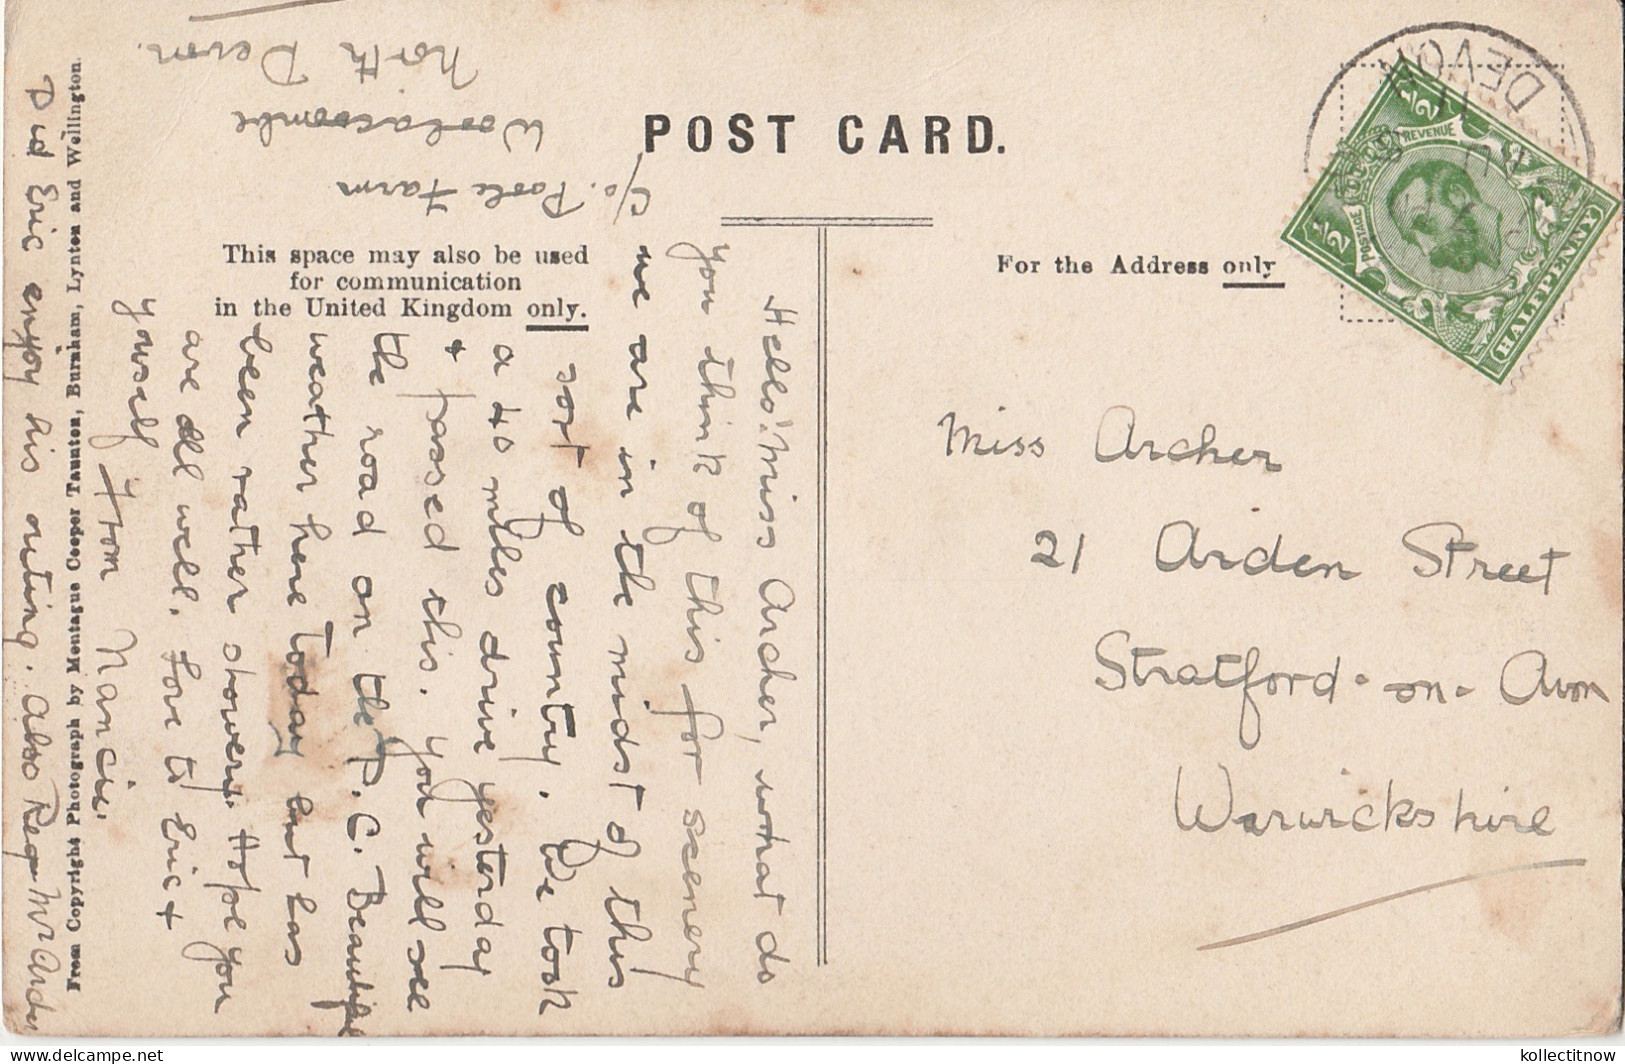 POST CARD.
This space may also be used
for communication
in the United Kingdom only.
For the Address only
c/o. Poole Farm
Woolacoombe
North Devon.
Hello! Miss Archer, what do
you think of this for scenery
we are in the midst of this
sort of country. We took
a 40 miles drive yesterday
+ passed this. you will see
the road on the P.C. Beautiful
weather here today but has
been rather showery. Hope you
are all well. Love to Eric +
yourself from Nancie
Did Eric enjoy his outing. also Reg Mr Archer
From Copyright Photograph by Montague Cooper Taunton, Burnham, Lynton and Wellington.
Miss Archer
21 Arden Street
Stratford-on-Avon
Warwickshire
DEVON
POSTAGE
REVENUE
1/2
1/2
HALFPENNY
kollectitnow